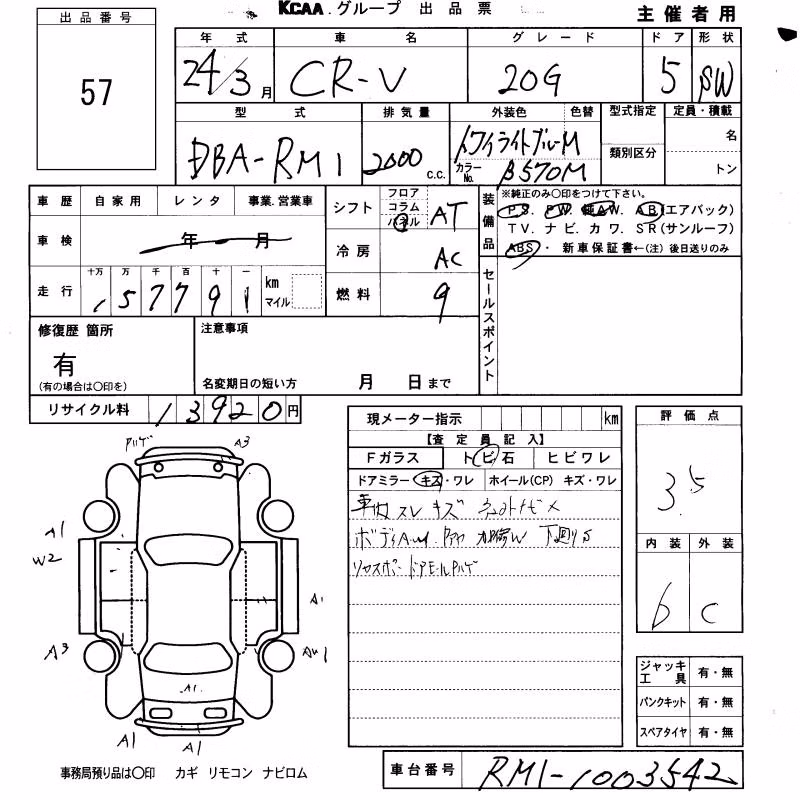 KCAA.グループ 出品票 主催者用
出品番号
57
年式 車名 グレード ドア 形状
24/3月 CR-V 20G 5 SW
型式 排気量 外装色 色替 型式指定 定員・積載
DBA-RM1 2000 c.c. トワイライトブルーM 類別区分 名
カラーNo. B570M トン
車歴 自家用 レンタ 事業.営業車
シフト フロア コラム パネル AT
装備品 ※純正のみ○印をつけて下さい。
PS. PW. 純AW. AB(エアバック)
TV. ナビ. カワ. SR(サンルーフ)
ABS・ 新車保証書←(注) 後日送りのみ
車検 年 月
冷房 AC
走行 十万 万 千 百 十 一
157791 km マイル
燃料 9
セールスポイント
修復歴 箇所
有
(有の場合は○印を)
注意事項
名変期日の短い方 月 日まで
リサイクル料 13920円
現メーター指示 km
【査定員記入】
Fガラス トビ石 ヒビワレ
ドアミラー キズ・ワレ ホイール(CP) キズ・ワレ
スレ キズ
ボディ 下回りS
ドアモールハゲ
評価点
3.5
内装 外装
b C
ハゲ A3
A1
W2
A1
A3
A1
A1
A1
ジャッキ工具 有・無
パンクキット 有・無
スペアタイヤ 有・無
事務局預り品は○印 カギ リモコン ナビロム
車台番号 RM1-1003542